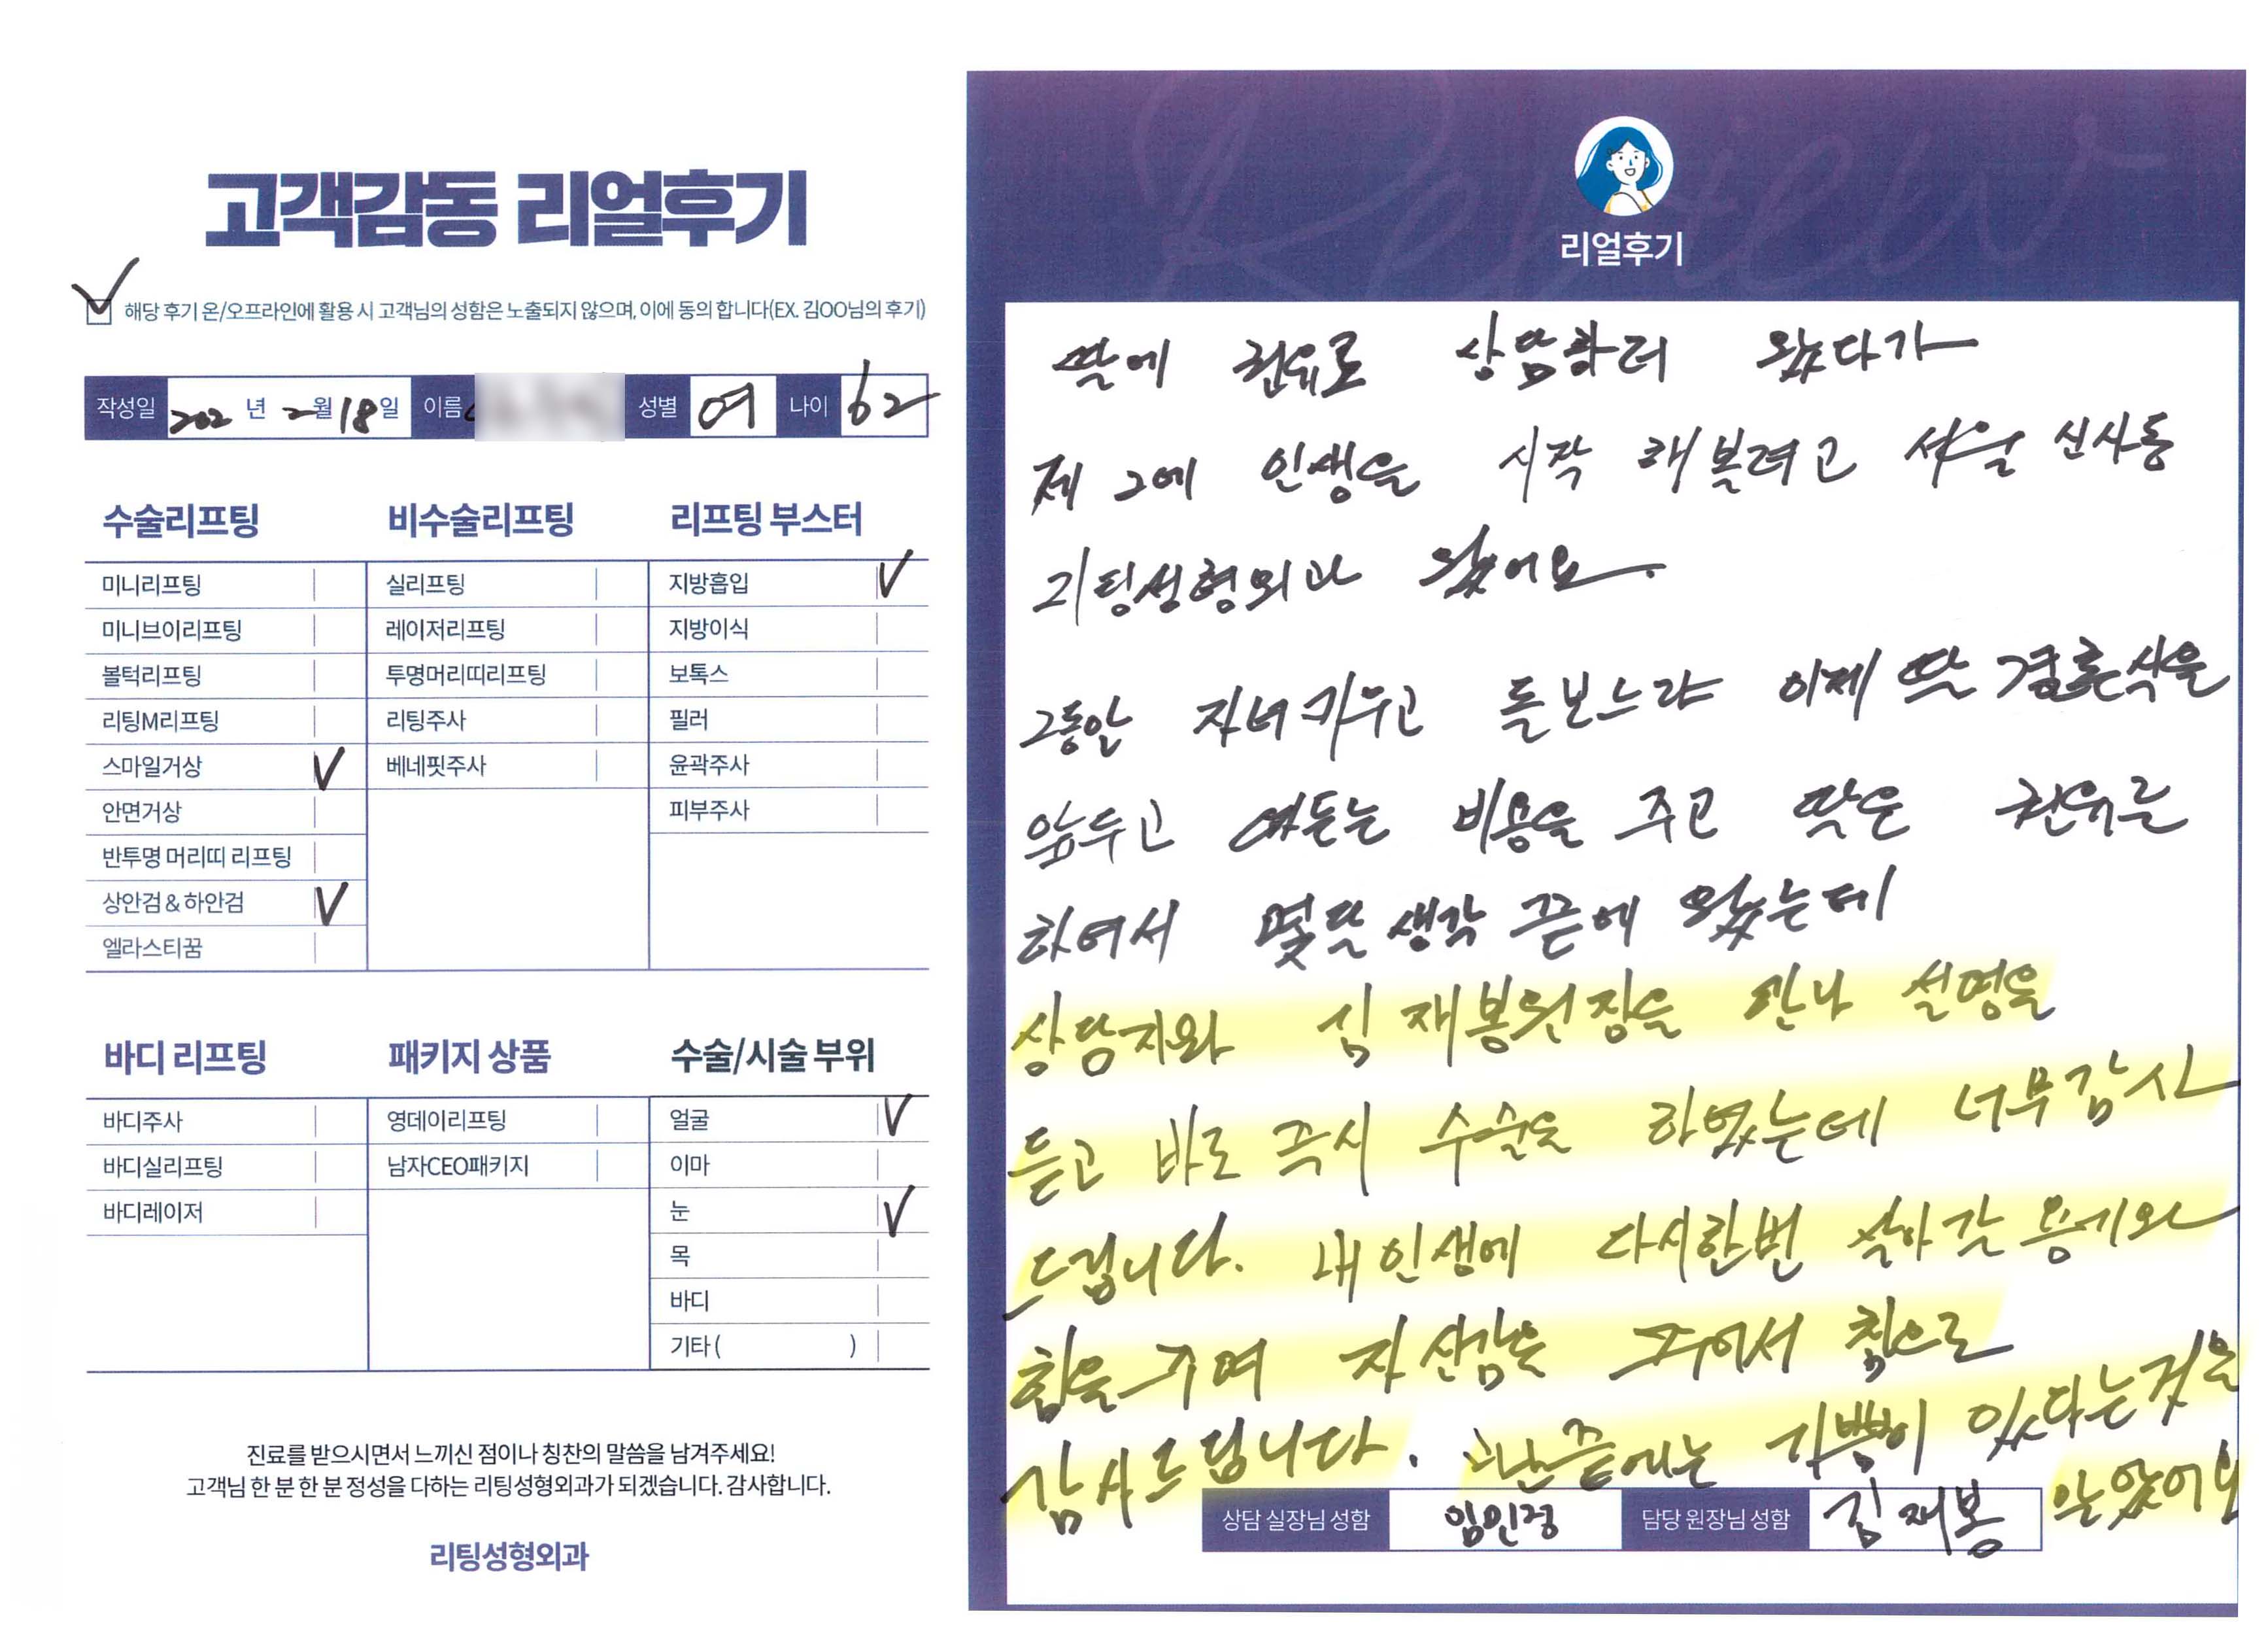 고객감동 리얼후기
해당 후기 온/오프라인에 활용 시 고객님의 성함은 노출되지 않으며, 이에 동의 합니다(EX. 김OO님의 후기)
작성일 202 년 2월 18일 이름 성별 여 나이 62
수술리프팅
미니리프팅
미니브이리프팅
볼턱리프팅
리팅M리프팅
스마일거상
안면거상
반투명 머리띠 리프팅
상안검 & 하안검
엘라스티꿈
비수술리프팅
실리프팅
레이저리프팅
투명머리띠리프팅
리팅주사
베네핏주사
리프팅 부스터
지방흡입
지방이식
보톡스
필러
윤곽주사
피부주사
바디 리프팅
바디주사
바디실리프팅
바디레이저
패키지 상품
영데이리프팅
남자CEO패키지
수술/시술 부위
얼굴
이마
눈
목
바디
기타 ( )
진료를 받으시면서 느끼신 점이나 칭찬의 말씀을 남겨주세요!
고객님 한 분 한 분 정성을 다하는 리팅성형외과가 되겠습니다. 감사합니다.
리팅성형외과
Review
리얼후기
딸에 권유로 상담하러 왔다가
제 2에 인생을 시작 해볼려고 서울 신사동
리팅성형외과 왔어요.
그동안 자녀키우고 돌보느랴 이제 딸 결혼식을
앞두고 비용을 주고 딸은 권유를
하여서 몇달 생각 끝에 왔는데
상담자와 김재봉원장을 만나 설명을
듣고 바로 즉시 수술을 하였는데 너무감사
드립니다. 내인생에 다시한번 살아갈 용기와
힘을 주며 자신감을 주어서 참으로
감사드립니다. 끝에는 기쁨이 있다는것을
알았어요
상담 실장님 성함 임민정 담당 원장님 성함 김재봉